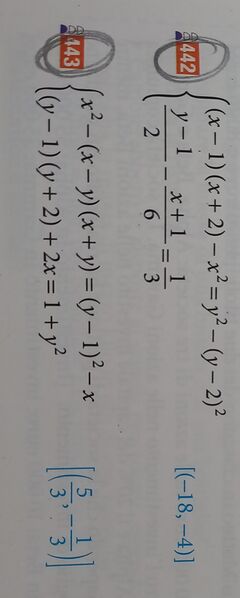 442 (x − 1)(x + 2) − x² = y² − (y − 2)²
(y − 1)/2 − (x + 1)/6 = 1/3
[(−18, −4)]
443 x² − (x − y)(x + y) = (y − 1)² − x
(y − 1)(y + 2) + 2x = 1 + y²
[(5/3, −1/3)]